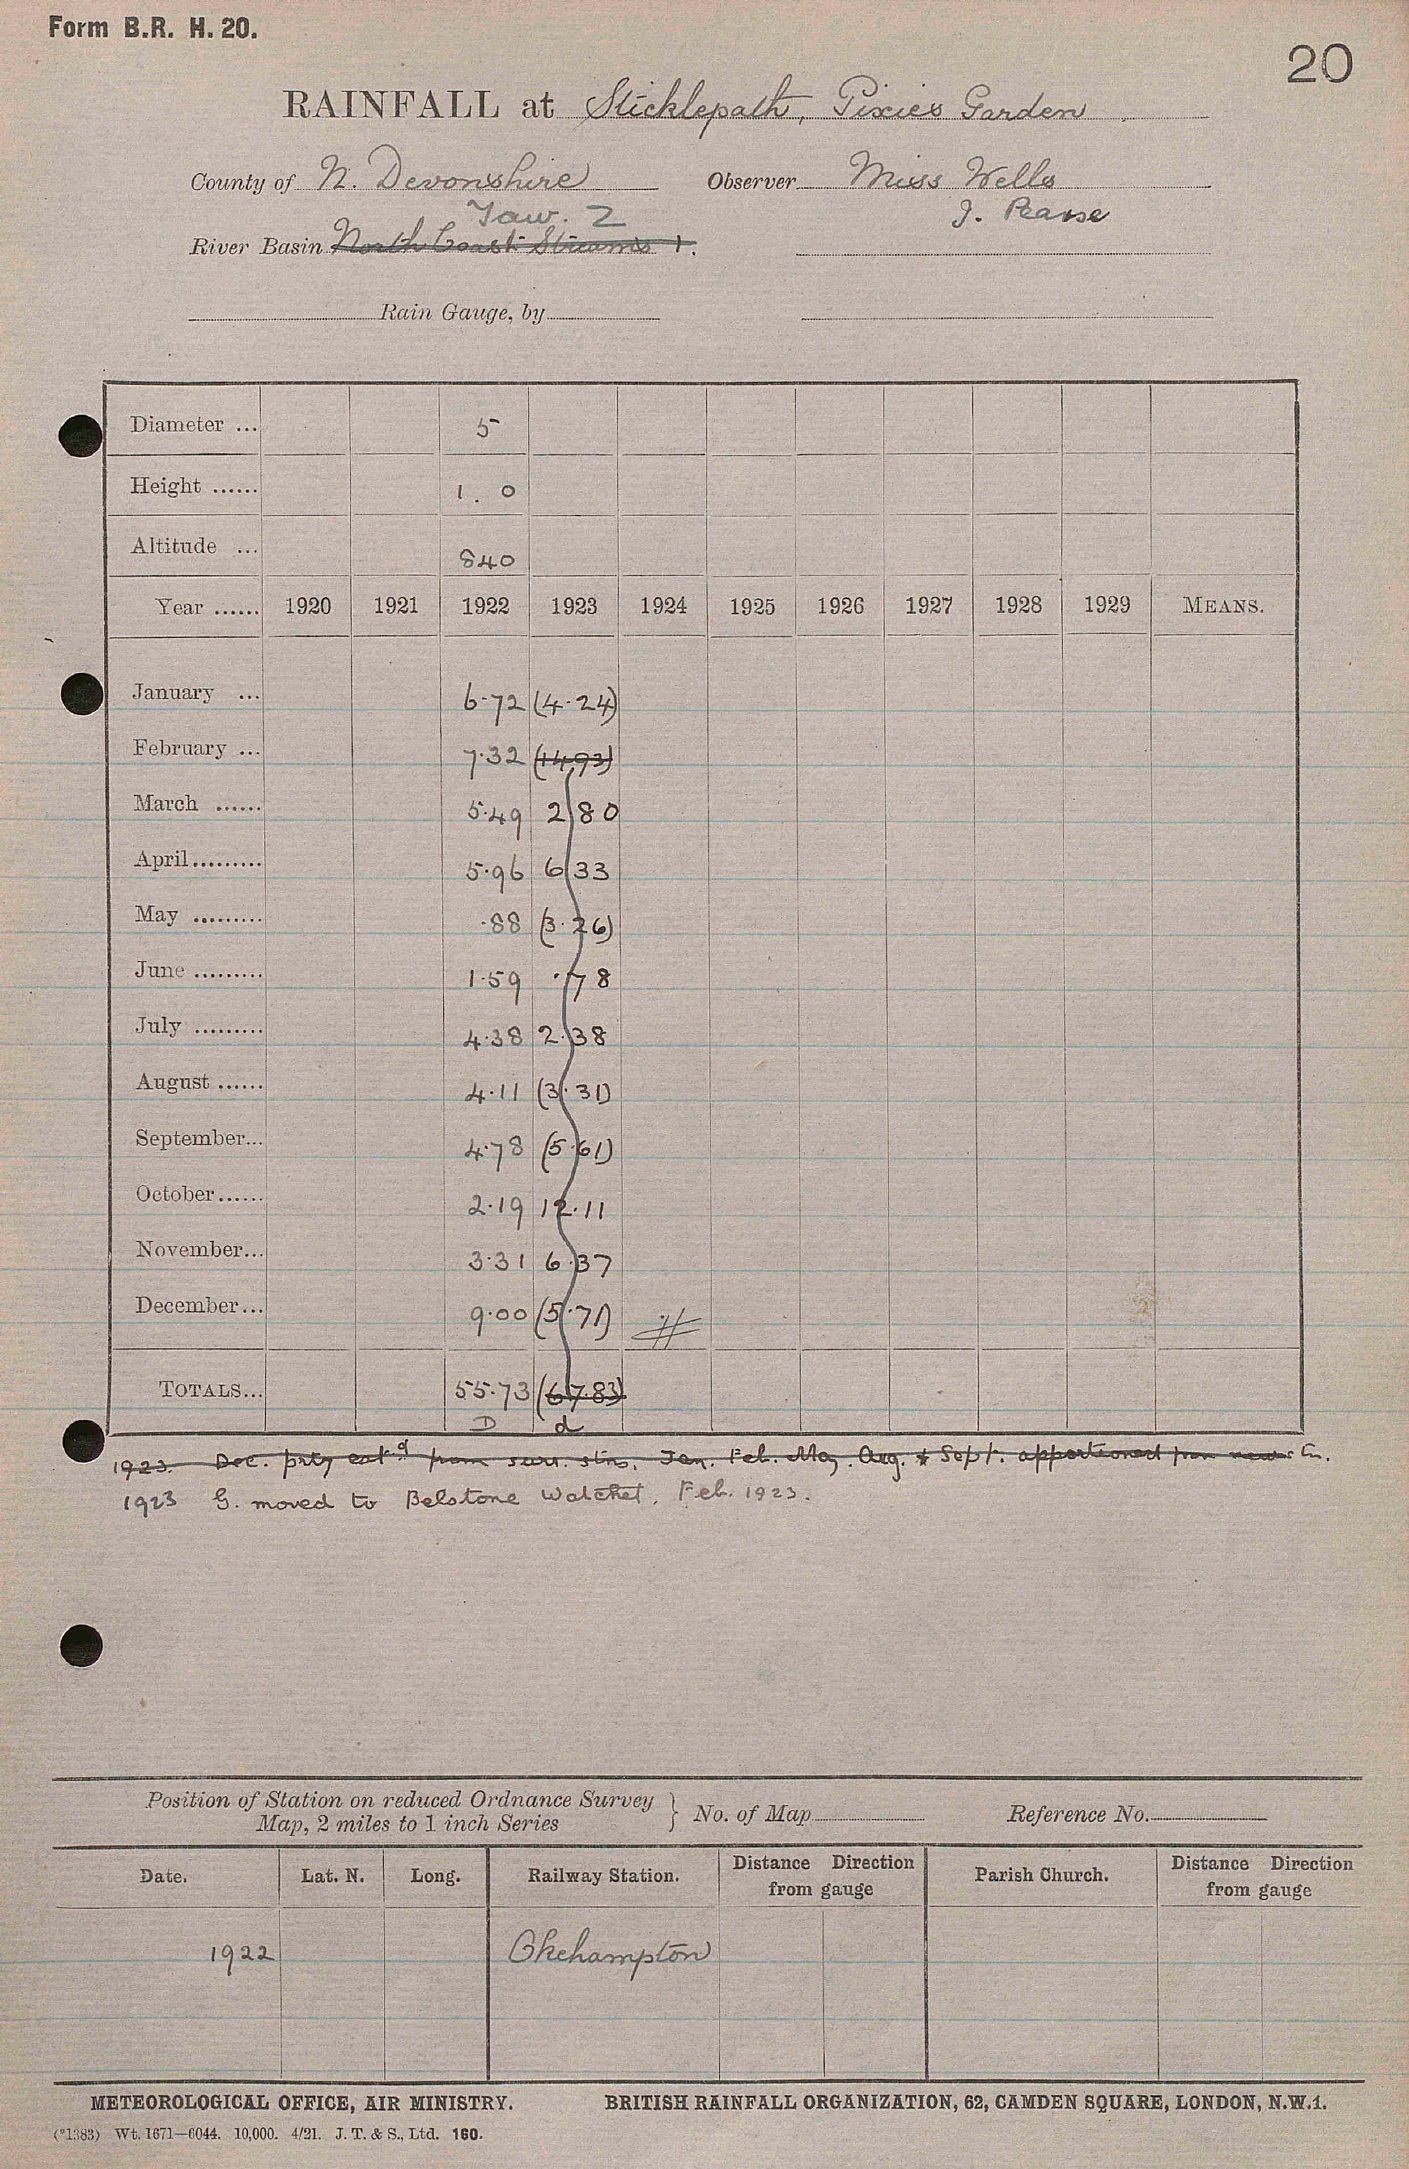 Form B.R. H. 20.
20
RAINFALL at Sticklepath, Pixies Garden
County of N. Devonshire Observer Miss Wells
Taw. 2 J. Pearse
River Basin North Coast Streams 1.
Rain Gauge, by
Diameter ... 5
Height ...... 1. 0
Altitude ... 840
Year ...... 1920 1921 1922 1923 1924 1925 1926 1927 1928 1929 MEANS.
January ... 6.72 (4.24)
February ... 7.32 (14.93)
March ...... 5.49 2.80
April......... 5.96 6.33
May ......... .88 (3.26)
June ......... 1.59 .78
July ......... 4.38 2.38
August ...... 4.11 (3.31)
September... 4.78 (5.61)
October...... 2.19 12.11
November... 3.31 6.37
December... 9.00 (5.71)
TOTALS... 55.73 (67.83)
D d
1923. Dec. prtly estd from surr. stns. Jan. Feb. May. Aug. & Sept. apportioned from new stn.
1923 G. moved to Belstone Watchet, Feb. 1923.
Position of Station on reduced Ordnance Survey
Map, 2 miles to 1 inch Series } No. of Map Reference No.
Date. Lat. N. Long. Railway Station. Distance Direction from gauge Parish Church. Distance Direction from gauge
1922 Okehampton
METEOROLOGICAL OFFICE, AIR MINISTRY. BRITISH RAINFALL ORGANIZATION, 62, CAMDEN SQUARE, LONDON, N.W.1.
(*1383) Wt. 1671—6044. 10,000. 4/21. J. T. & S., Ltd. 160.